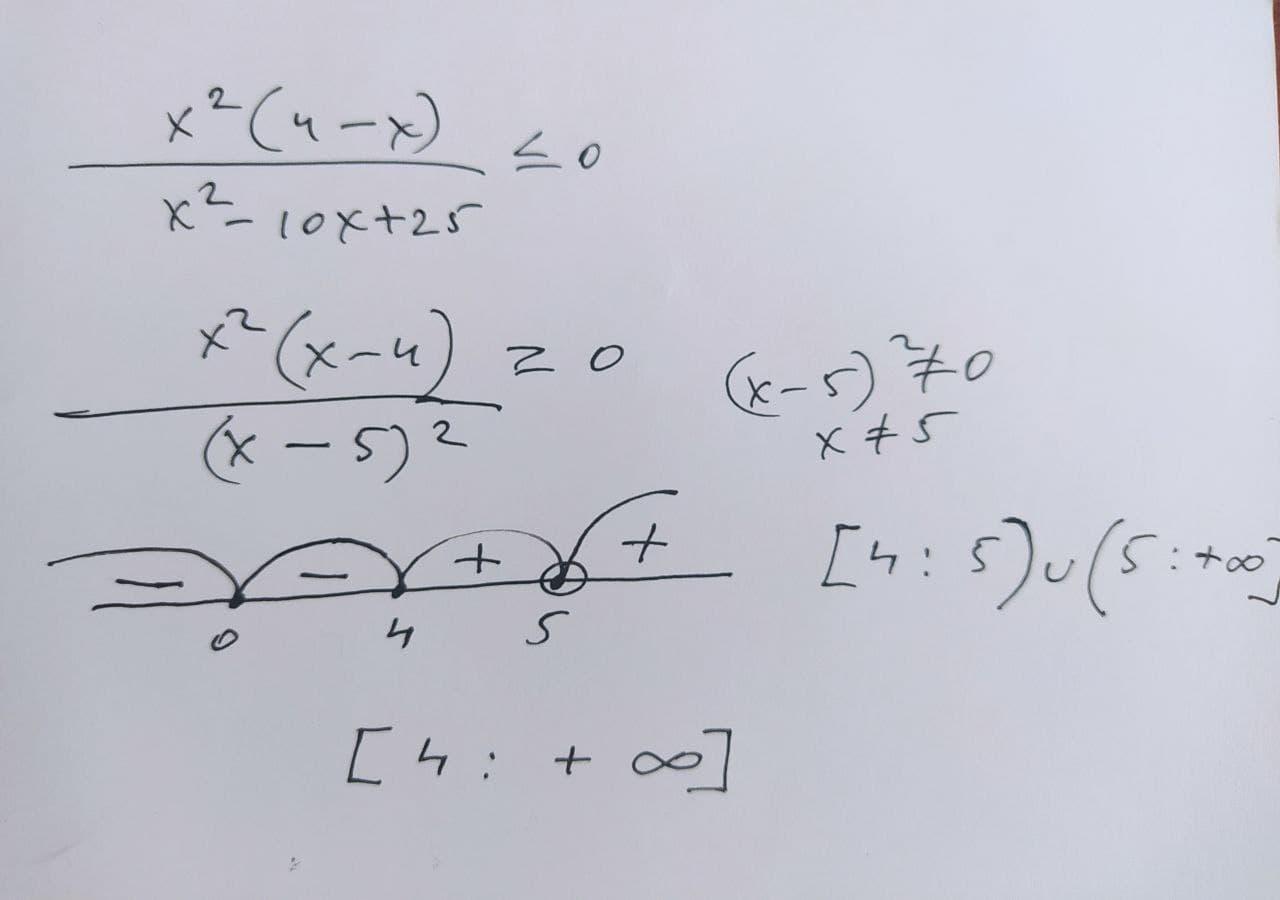 x²(4-x)
―――――――― ≤ 0
x²-10x+25
x²(x-4)
―――――――― ≥ 0
(x-5)²
(x-5)²≠0
x≠5
- - + +
0 4 5
[4: 5)∪(5:+∞]
[4: +∞]